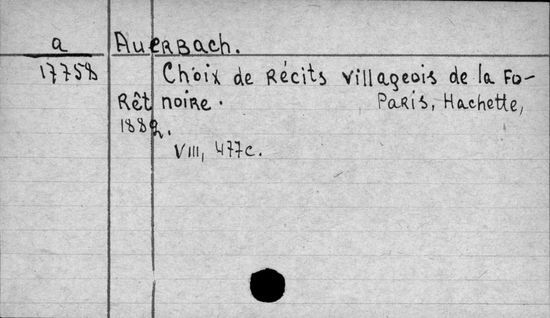 a Auerbach.
17758 Choix de Récits villageois de la Fo-
rêt noire. Paris, Hachette,
1882.
VIII, 477c.